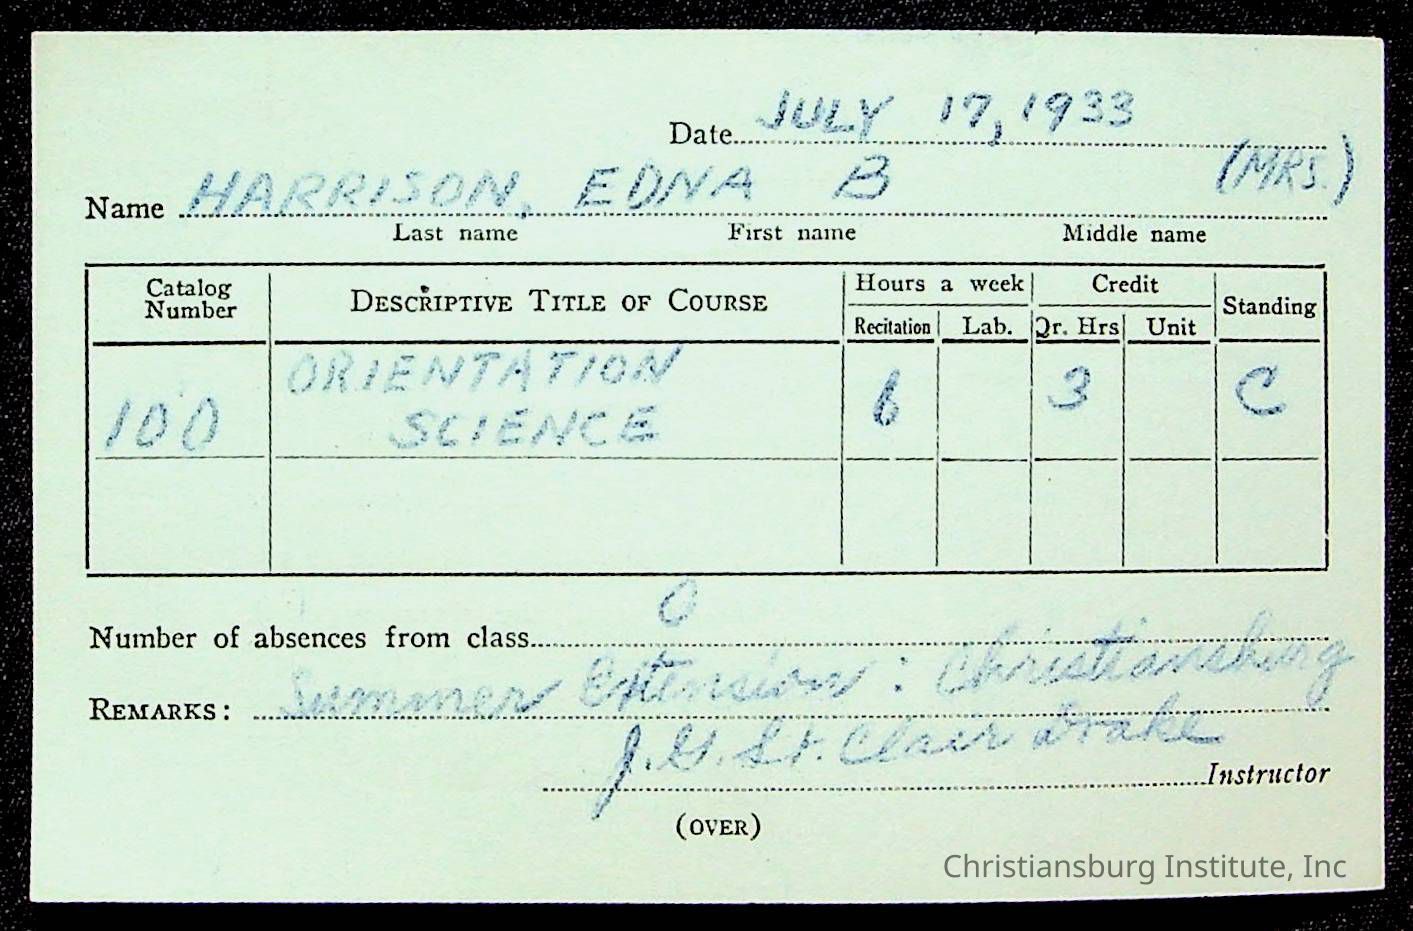 Date JULY 17, 1933
Name HARRISON, EDNA B (MRS.)
Last name First name Middle name
Catalog Number DESCRIPTIVE TITLE OF COURSE Hours a week Credit Standing
Recitation Lab. Qr. Hrs Unit
ORIENTATION
100 SCIENCE 6 3 C
Number of absences from class 0
REMARKS: Summer Extension: Christiansburg
J. G. St. Clair Drake Instructor
(OVER)
Christiansburg Institute, Inc